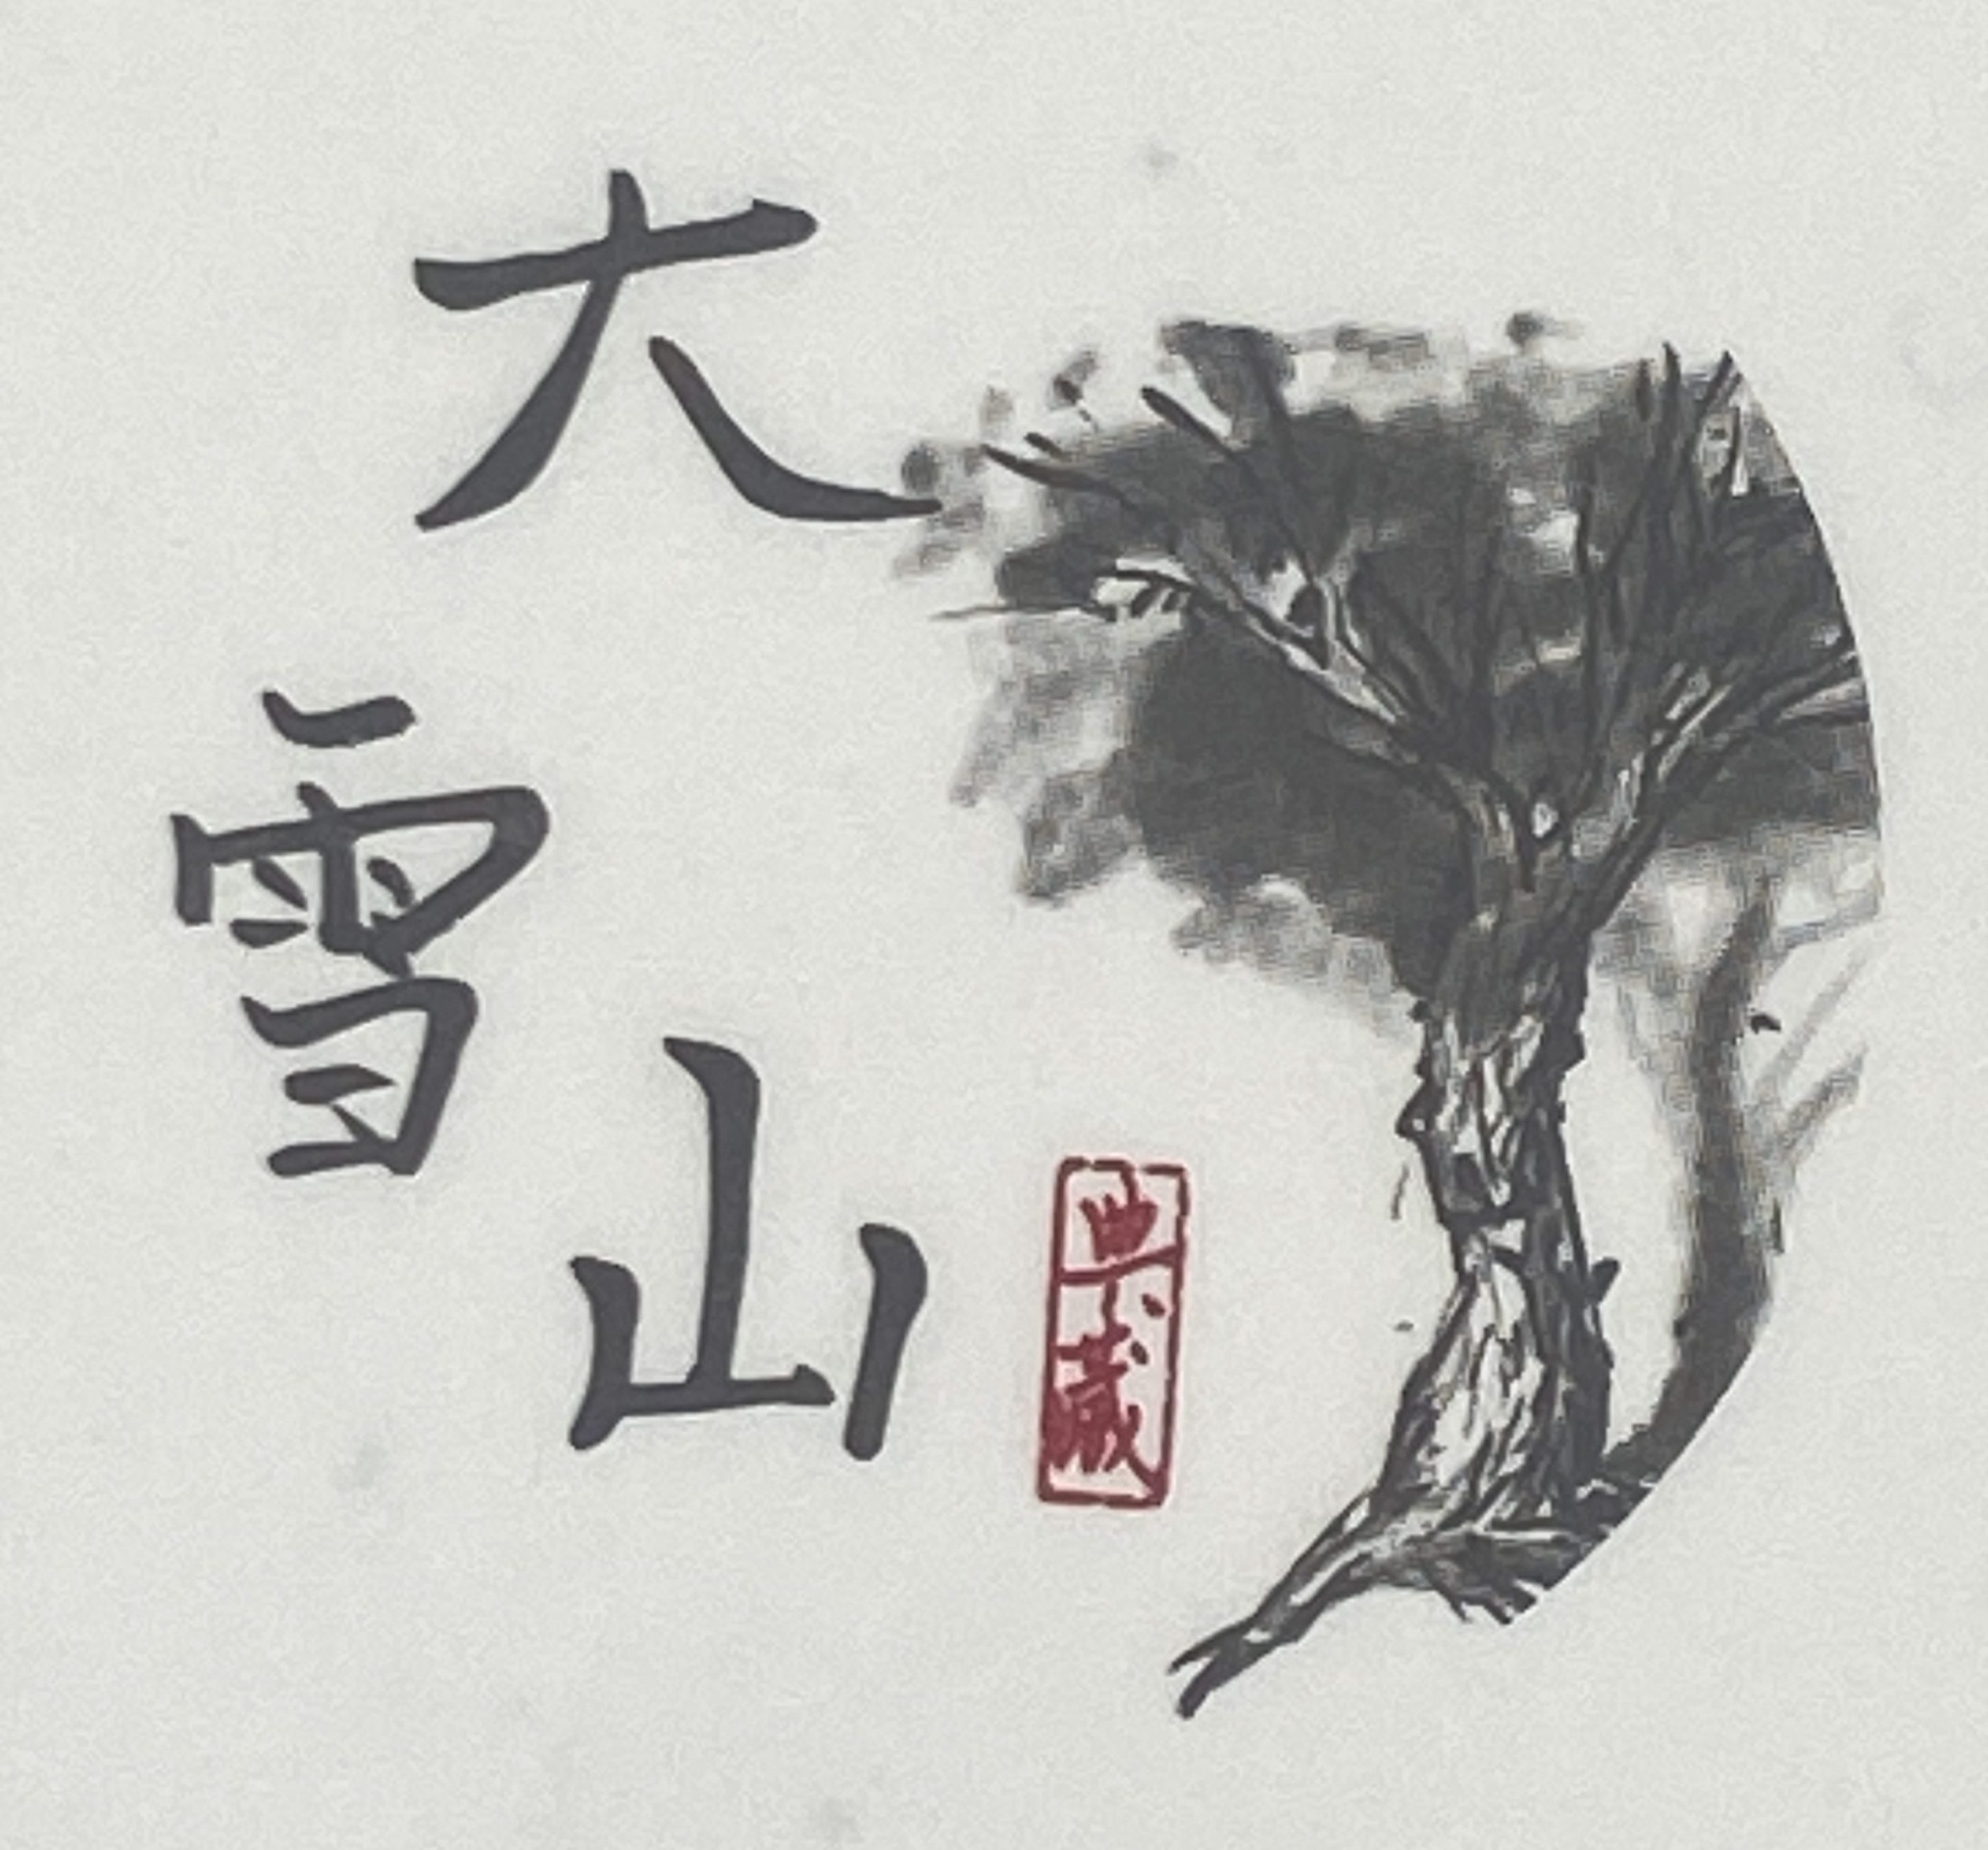 大雪山
典藏